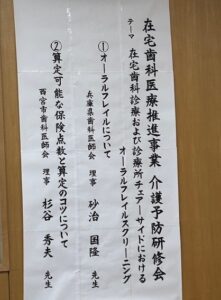 在宅歯科医療推進事業 介護予防研修会
テーマ 在宅歯科診療および診療所チェアーサイドにおける
オーラルフレイルスクリーニング
①オーラルフレイルについて
兵庫県歯科医師会 理事 砂治 國隆 先生
②算定可能な保険点数と算定のコツについて
西宮市歯科医師会 理事 杉谷 秀夫 先生